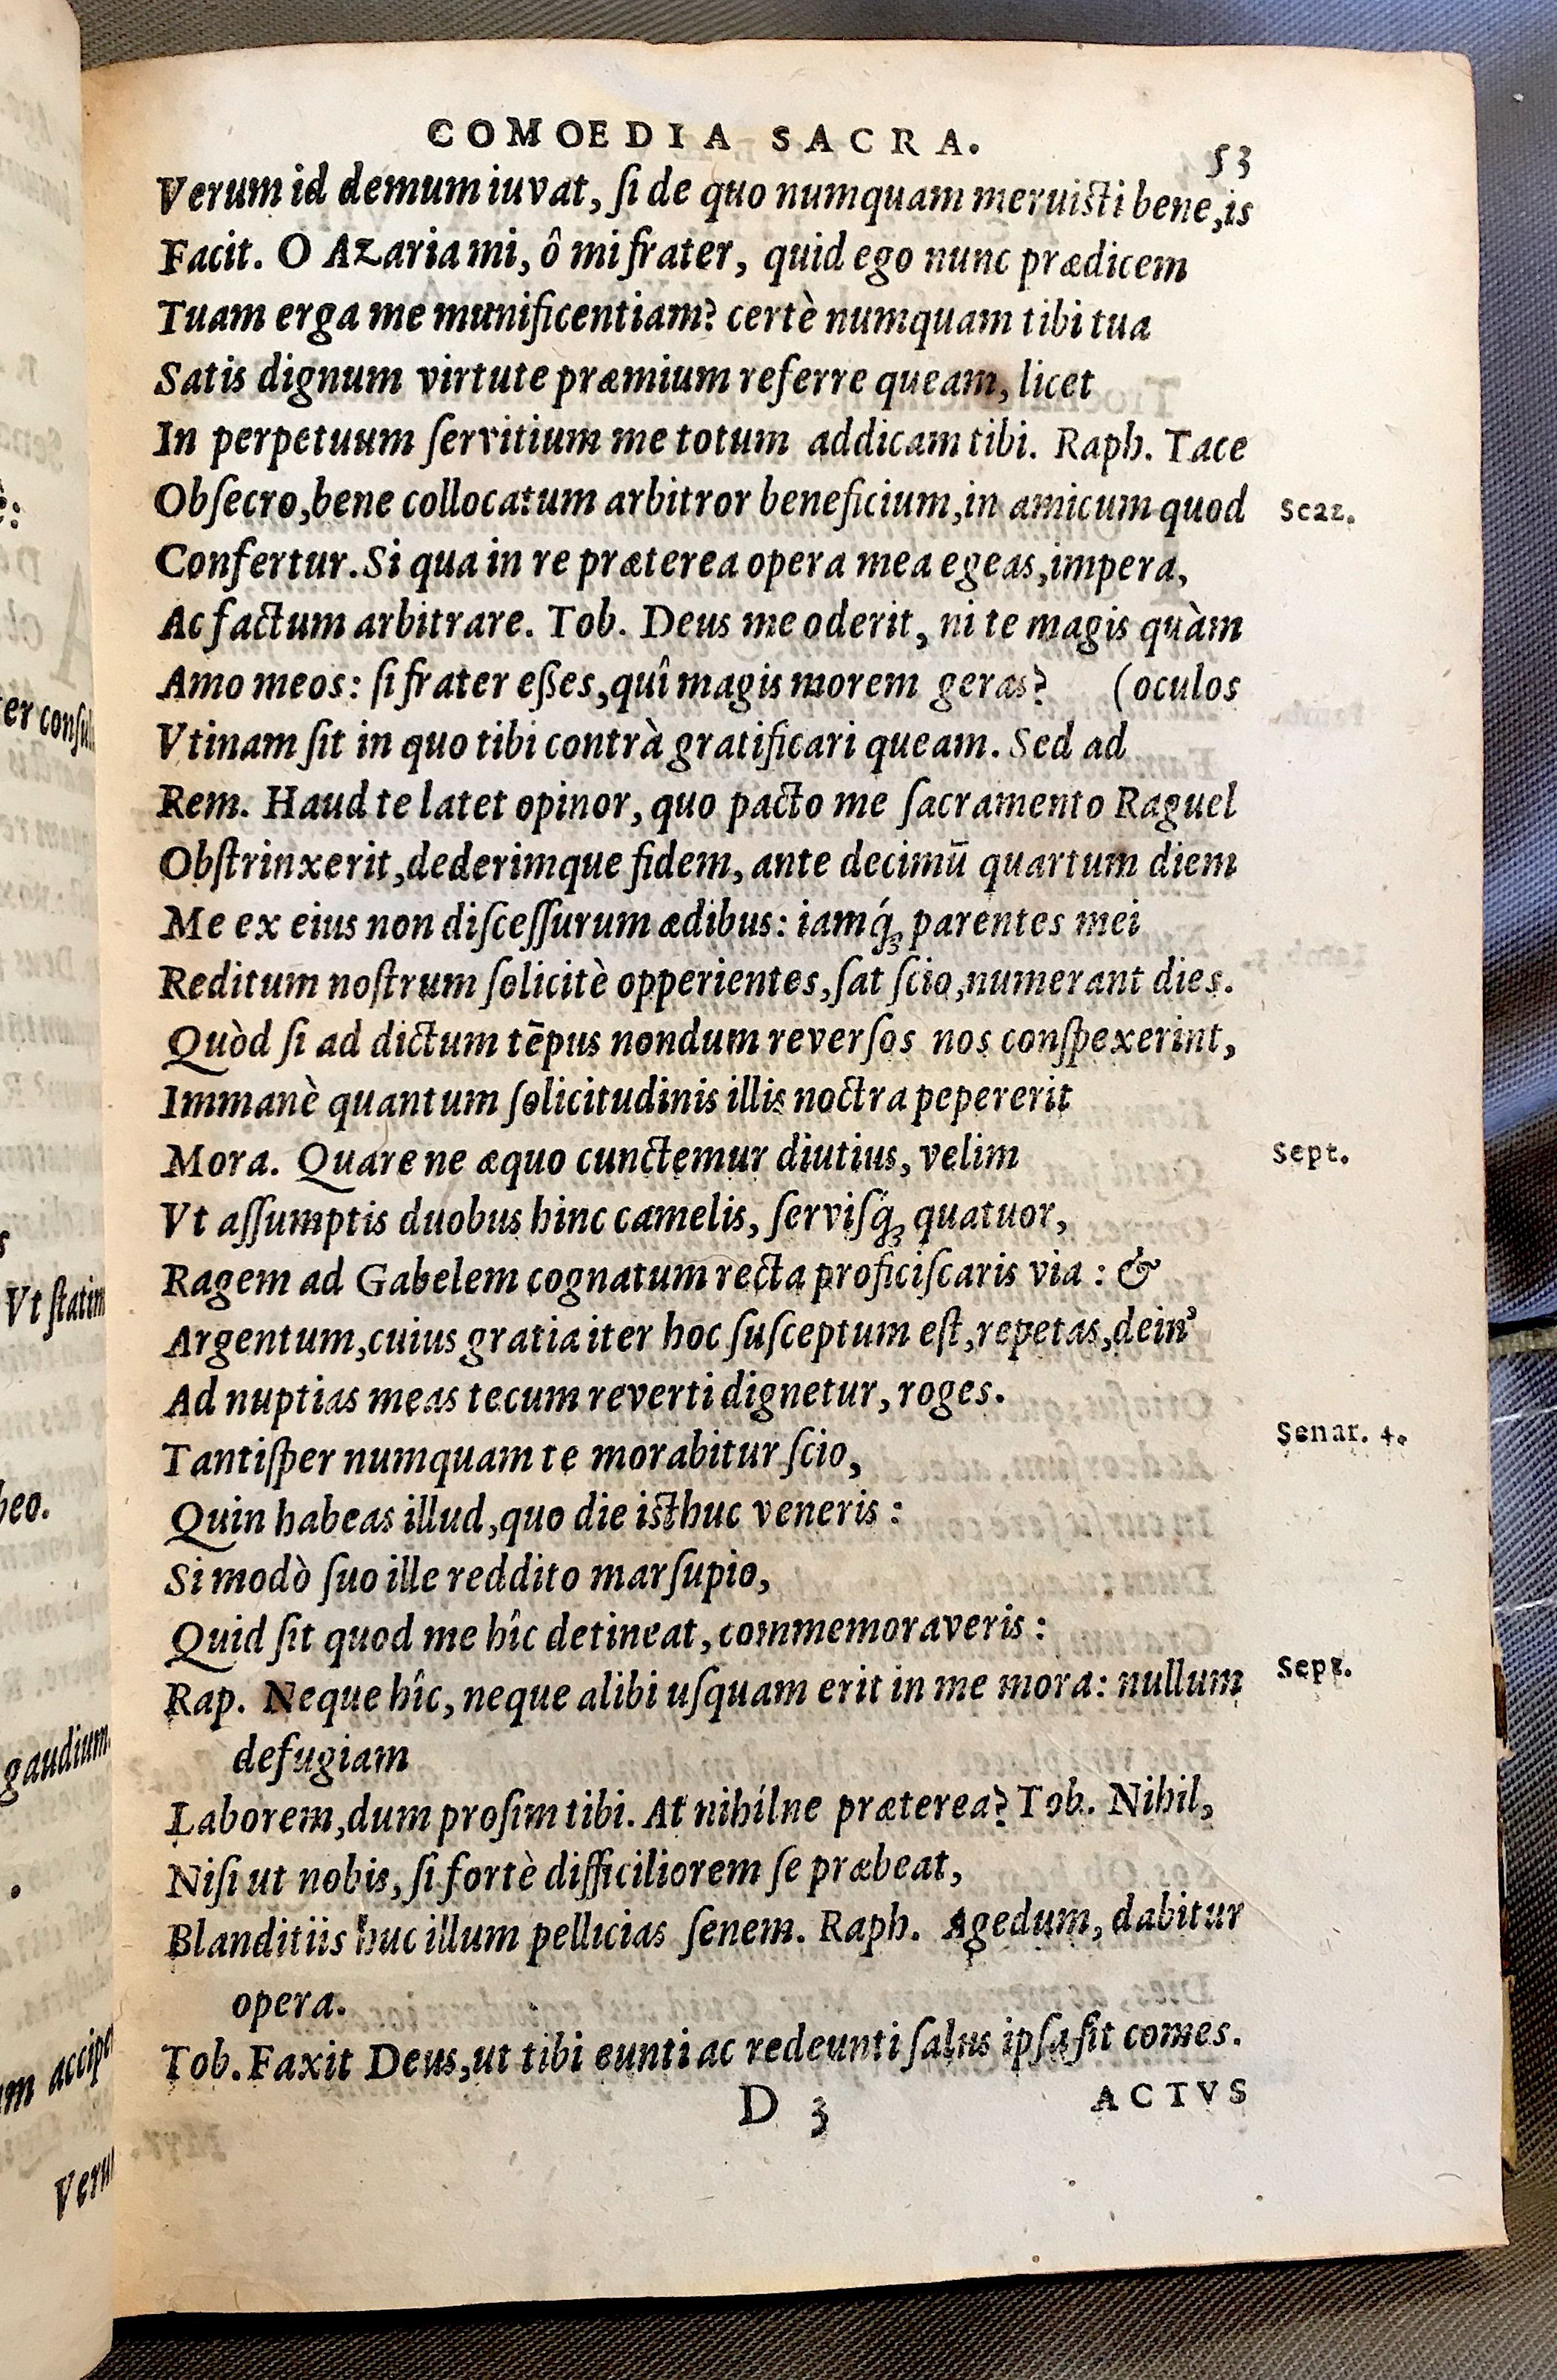 COMOEDIA SACRA.
53
Verum id demum iuvat, ſi de quo numquam meruisti bene, is
Facit. O Azaria mi, ô mi frater, quid ego nunc prædicem
Tuam erga me munificentiam? certè numquam tibi tua
Satis dignum virtute præmium referre queam, licet
In perpetuum ſervitium me totum addicam tibi. Raph. Tace
Obſecro, bene collocatum arbitror beneficium, in amicum quod
Scaz.
Confertur. Si qua in re præterea opera mea egeas, impera,
Ac factum arbitrare. Tob. Deus me oderit, ni te magis quàm
Amo meos: ſi frater eßes, quî magis morem geras? (oculos
Vtinam ſit in quo tibi contrà gratificari queam. Sed ad
Rem. Haud te latet opinor, quo pacto me ſacramento Raguel
Obſtrinxerit, dederimque fidem, ante decimū quartum diem
Me ex eius non diſceſſurum ædibus: iamq́ꝫ parentes mei
Reditum noſtrum ſolicitè opperientes, ſat ſcio, numerant dies.
Quòd ſi ad dictum tēpus nondum reverſos nos conſpexerint,
Immanè quantum ſolicitudinis illis noctra pepererit
Mora. Quare ne æquo cunctemur diutius, velim
Sept.
Vt aſſumptis duobus hinc camelis, ſerviſq́ꝫ quatuor,
Ragem ad Gabelem cognatum recta proficiſcaris via : &
Argentum, cuius gratia iter hoc ſuſceptum eſt, repetas, dein'
Ad nuptias meas tecum reverti dignetur, roges.
Tantiſper numquam te morabitur ſcio,
Senar. 4.
Quin habeas illud, quo die isthuc veneris :
Si modò ſuo ille reddito marſupio,
Quid ſit quod me hîc detineat, commemoraveris :
Rap. Neque hîc, neque alibi uſquam erit in me mora: nullum
Sept.
defugiam
Laborem, dum proſim tibi. At nihílne præterea? Tob. Nihil,
Niſi ut nobis, ſi fortè difficiliorem ſe præbeat,
Blanditiis huc illum pellicias ſenem. Raph. Agedum, dabitur
opera.
Tob. Faxit Deus, ut tibi eunti ac redeunti ſalus ipſa ſit comes.
D 3
ACTVS
er conſul
Vt ſtatim
beo.
gaudium.
m accipe
Veru